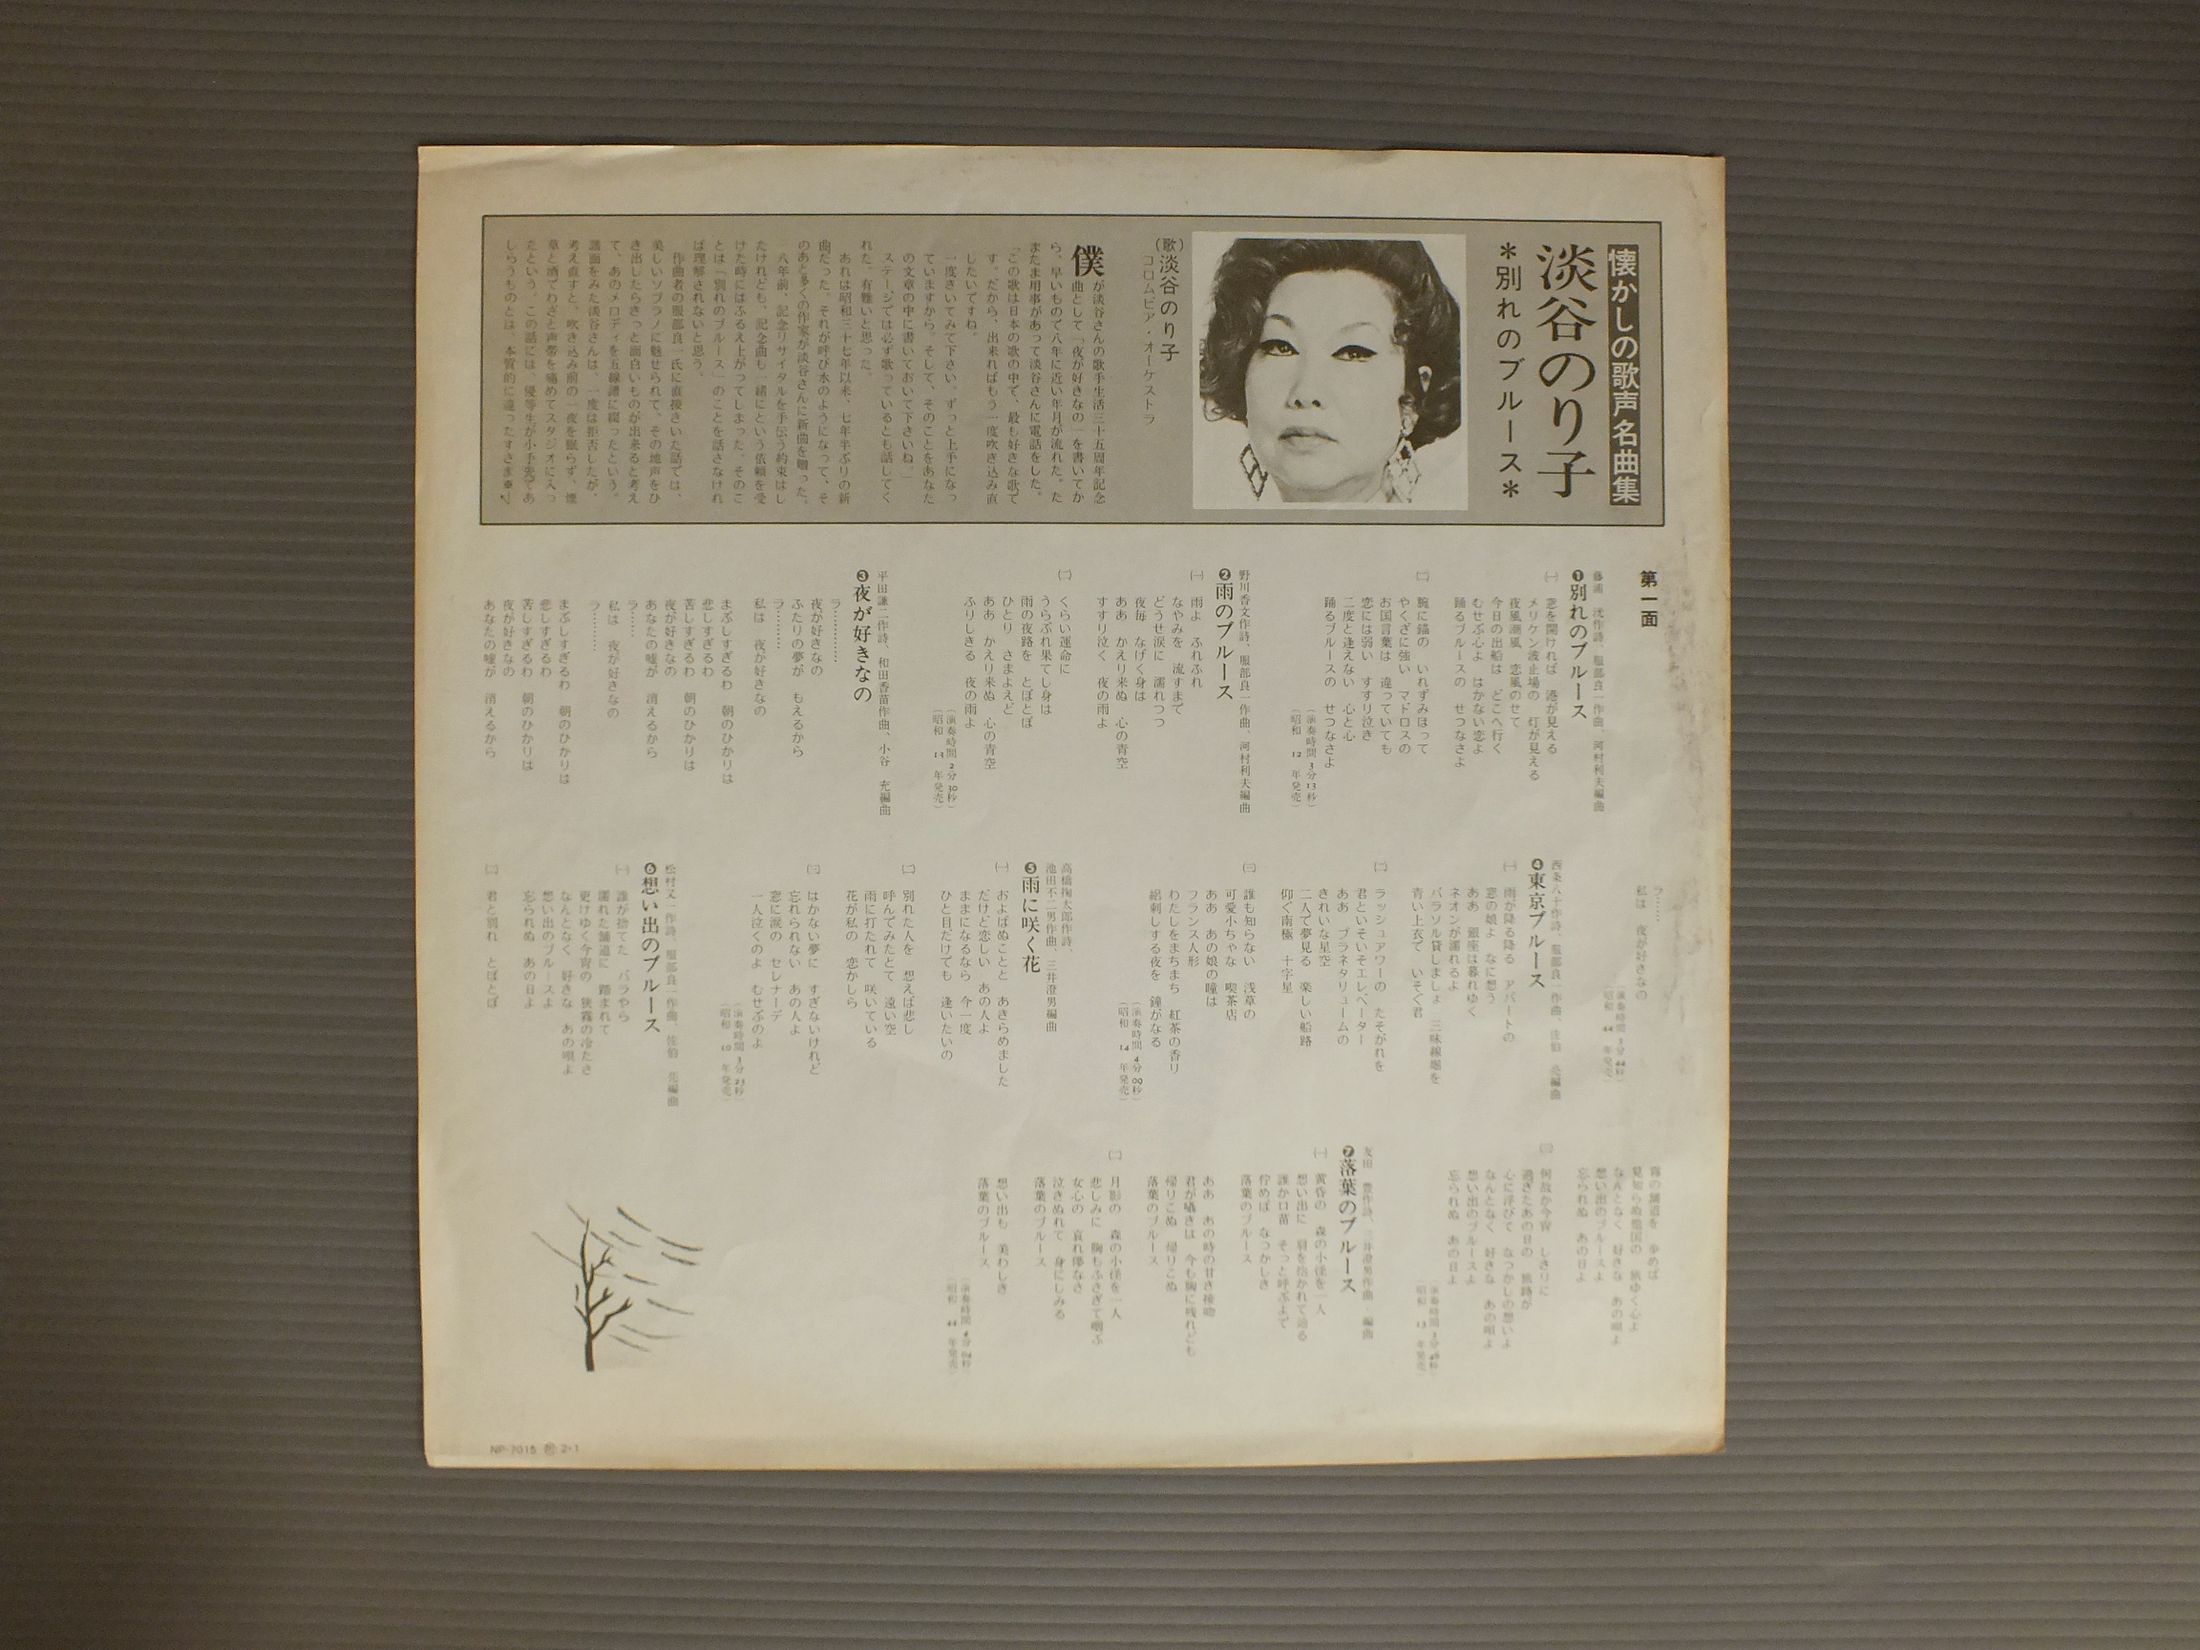 懐かしの歌声名曲集
淡谷のり子
＊別れのブルース＊
(歌)淡谷のり子
コロムビア・オーケストラ
僕が淡谷さんの歌手生活三十五周年記念
曲として「夜が好きなの」を書いてか
ら、早いもので八年に近い年月が流れた。た
またま用事があって淡谷さんに電話をした。
「この歌は日本の歌の中で、最も好きな歌で
す。だから、出来ればもう一度吹き込み直
したいですね。
一度きいてみて下さい。ずっと上手になっ
ていますから。そして、そのことをあなた
の文章の中に書いておいて下さいね。」
ステージでは必ず歌っているとも話してく
れた。有難いと思った。
あれは昭和三十七年以来、七年半ぶりの新
曲だった。それが呼び水のようになって、そ
のあと多くの作家が淡谷さんに新曲を贈った。
八年前、記念リサイタルを手伝う約束はし
たけれども、記念曲も一緒にという依頼を受
けた時にはふるえ上がってしまった。そのこ
とは「別れのブルース」のことを話さなけれ
ば理解されないと思う。
作曲者の服部良一氏に直接きいた話では、
美しいソプラノに魅せられて、その地声をひ
き出したらきっと面白いものが出来ると考え
て、あのメロディを五線譜に綴ったという。
譜面をみた淡谷さんは、一度は拒否したが、
考え直すと、吹き込み前の一夜を眠らず、煙
草と酒でわざと声帯を痛めてスタジオに入っ
たという。この話には、優等生が小手先であ
しらうものとは、本質的に違ったすさま
第一面
❶別れのブルース
藤浦 洸作詩、服部良一作曲、河村利夫編曲
㈠ 窓を開ければ 港が見える
メリケン波止場の 灯が見える
夜風潮風 恋風のせて
今日の出船は どこへ行く
むせぶ心よ はかない恋よ
踊るブルースの せつなさよ
㈡ 腕に錨の いれずみほって
やくざに強い マドロスの
お国言葉は 違っていても
恋には弱い すすり泣き
二度と逢えない 心と心
踊るブルースの せつなさよ
(演奏時間 3分13秒)
(昭和 12 年発売)
❷雨のブルース
野川香文作詩、服部良一作曲、河村利夫編曲
㈠ 雨よ ふれふれ
なやみを 流すまで
どうせ涙に 濡れつつ
夜毎 なげく身は
ああ かえり来ぬ 心の青空
すすり泣く 夜の雨よ
㈡ くらい運命に
うらぶれ果てし身は
雨の夜路を とぼとぼ
ひとり さまよえど
ああ かえり来ぬ 心の青空
ふりしきる 夜の雨よ
(演奏時間 2分30秒)
(昭和 13 年発売)
❸夜が好きなの
平田謙二作詩、和田香苗作曲、小谷 充編曲
ラ…………
夜が好きなの
ふたりの夢が もえるから
ラ…………
私は 夜が好きなの
まぶしすぎるわ 朝のひかりは
悲しすぎるわ
苦しすぎるわ 朝のひかりは
夜が好きなの
あなたの嘘が 消えるから
ラ…………
私は 夜が好きなの
ラ…………
まぶしすぎるわ 朝のひかりは
悲しすぎるわ
苦しすぎるわ 朝のひかりは
夜が好きなの
あなたの嘘が 消えるから
ラ………
私は 夜が好きなの
(演奏時間 3分44秒)
(昭和 44 年発売)
❹東京ブルース
西条八十作詩、服部良一作曲、佐伯 亮編曲
㈠ 雨が降る降る アパートの
窓の娘よ なに想う
ああ 銀座は暮れゆく
ネオンが濡れるよ
パラソル貸しましょ 三味線堀を
青い上衣で いそぐ君
㈡ ラッシュアワーの たそがれを
君といそいそエレベーター
ああ プラネタリュームの
きれいな星空
二人で夢見る 楽しい船路
仰ぐ南極 十字星
㈢ 誰も知らない 浅草の
可愛小ちゃな 喫茶店
ああ あの娘の瞳は
フランス人形
わたしをまちまち 紅茶の香り
絽刺しする夜を 鐘がなる
(演奏時間 4分00秒)
(昭和 14 年発売)
❺雨に咲く花
高橋掬太郎作詩、
池田不二男作曲、三井澄男編曲
㈠ およばぬことと あきらめました
だけど恋しい あの人よ
ままになるなら 今一度
ひと目だけでも 逢いたいの
㈡ 別れた人を 想えば悲し
呼んでみたとて 遠い空
雨に打たれて 咲いている
花が私の 恋かしら
㈢ はかない夢に すぎないけれど
忘れられない あの人よ
窓に涙の セレナーデ
一人泣くのよ むせぶのよ
(演奏時間 3分23秒)
(昭和 10 年発売)
❻想い出のブルース
松村又一作詩、服部良一作曲、佐伯 亮編曲
㈠ 誰が捨てた バラやら
濡れた舗道に 踏まれて
更けゆく今宵の 狭霧の冷たさ
なんとなく 好きな あの唄よ
想い出のブルースよ
忘られぬ あの日よ
㈡ 君と別れ とぼとぼ
霧の舗道を 歩めば
見知らぬ他国の 旅ゆく心よ
なんとなく 好きな あの唄よ
想い出のブルースよ
忘られぬ あの日よ
㈢ 何故か今宵 しきりに
過ぎたあの日の 旅路が
心に浮びて なつかしの想いよ
なんとなく 好きな あの唄よ
想い出のブルースよ
忘られぬ あの日よ
(昭和 13 年発売)
❼落葉のブルース
友田 豊作詩、三井澄男作曲・編曲
㈠ 黄昏の 森の小径を一人
想い出に 肩を抱かれて辿る
誰か口笛 そっと呼ぶよで
佇めば なつかしき
落葉のブルース
ああ あの時の甘き接吻
君が囁きは 今も胸に残れども
帰りこぬ 帰りこぬ
落葉のブルース
㈡ 月影の 森の小径を一人
悲しみに 胸もふさぎて咽ぶ
女心の 哀れ儚なさ
泣きぬれて 身にしみる
落葉のブルース
想い出も 美わしき
落葉のブルース
(演奏時間 4分04秒)
(昭和 44 年発売)
NP-7015 2・1